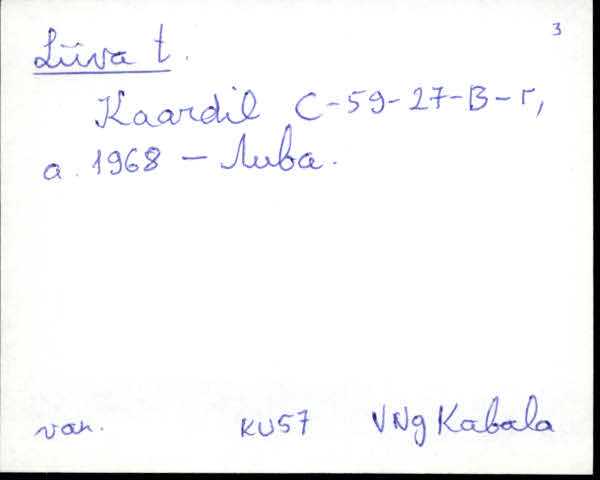 3
Liiva t.
Kaardil C-59-27-В-г,
a. 1968 – Лива.
van. KU57 VNg Kabala